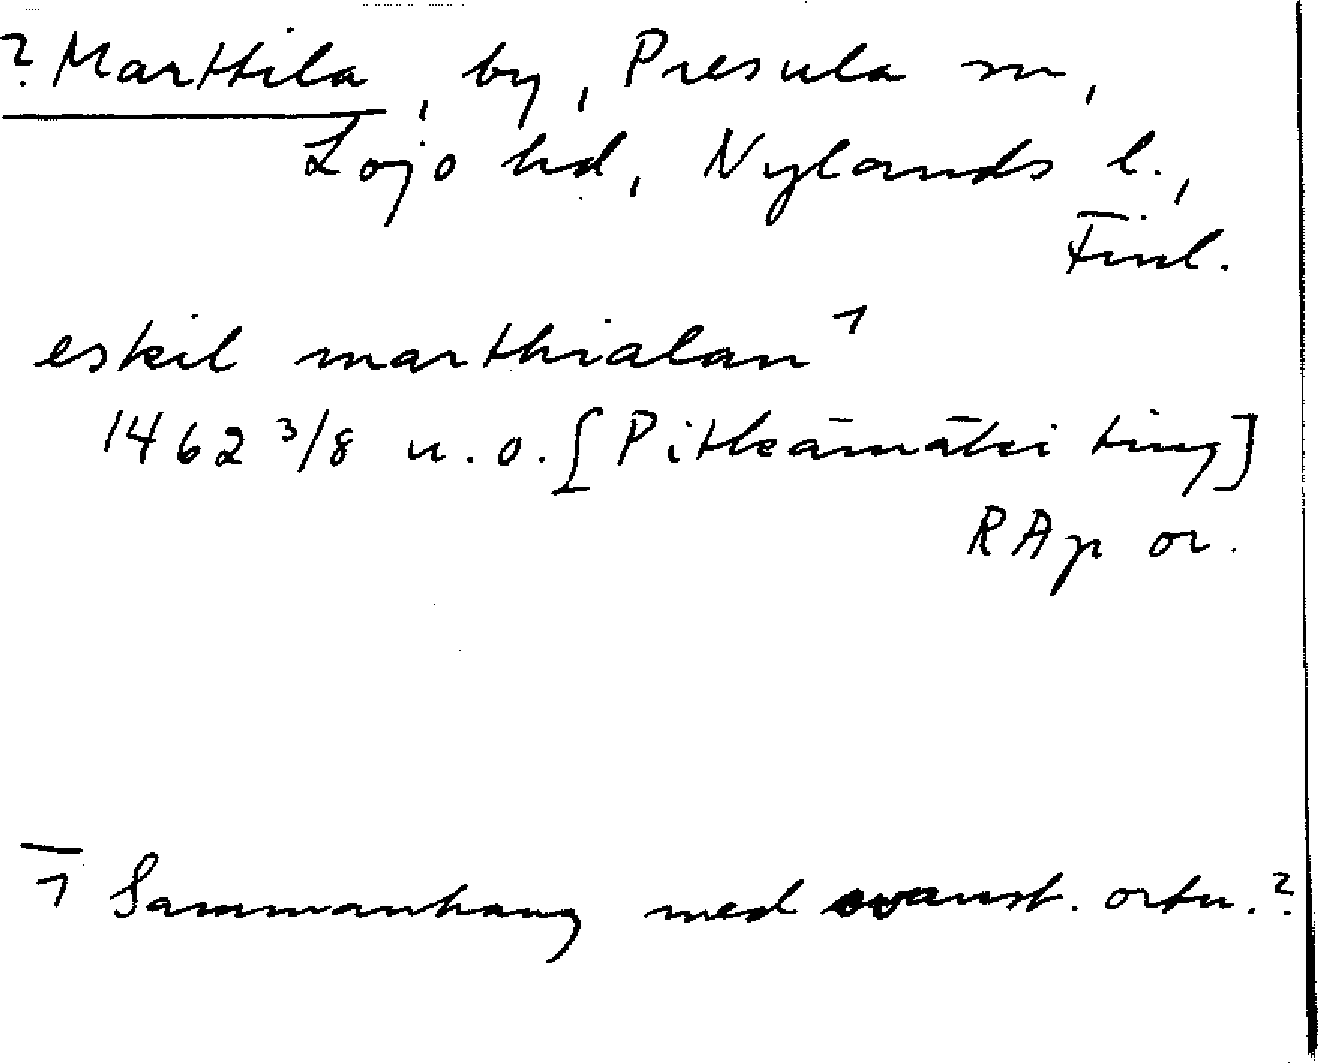 ? Marttila, by, Presula sn,
Lojo hd, Nylands l.,
Finl.
eskil marthialan 1
1462 3/8 u.o. [Pitkämäki ting]
RAp or.
1 Sammanhang med ovanst. ortn.?